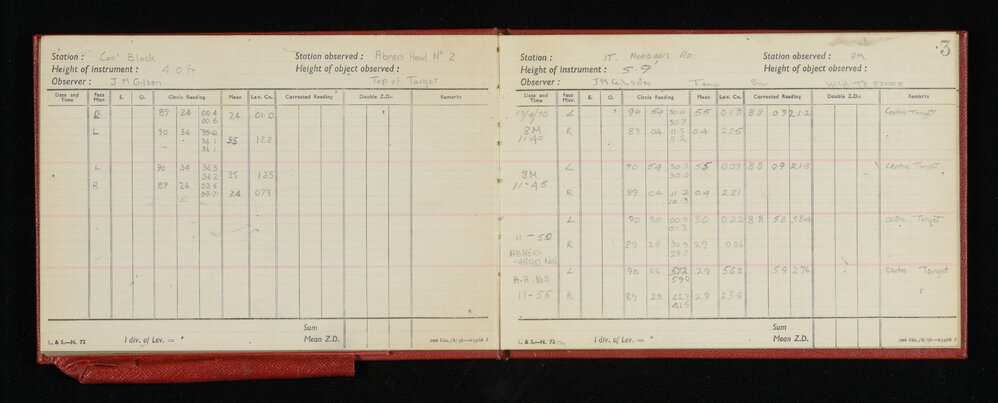 Station : Conᵗ Block Station observed : Abners Head Nº 2
Height of instrument : 4.0 ft Height of object observed :
Observer : J M Gilson Top of Target
Date and Time Face Micr. E. O. Circle Reading Mean Lev. Cn. Corrected Reading Double Z.D. Remarks
R 89 24 00.4 24 01.0
00.6
L 90 34 35.0 35 12.2
36.1
36.1
L 90 34 36.3 35 12.5
36.2
R 89 24 03.6 24 07.3
03.7
Sum
L. & S.—N. 72 1 div. of Lev. = " Mean Z.D.
3
Station : 1T. MORGANS RD. Station observed : 8M
Height of instrument : 5.9 Height of object observed :
Observer : J M Gilson Temp Wild T3
Date and Time Face Micr. E. O. Circle Reading Mean Lev. Cn. Corrected Reading Double Z.D. Remarks
13/4/70 L 90 54 30.0 55 01.3 88 09 21.2 Centre Target
30.7
8M R 89 04 11.3 04 22.5
11-40 11.2
L 90 54 30.3 55 00.8 88 09 21.8 Centre Target
8M 30.0
11-45 R 89 04 11.2 04 22.1
10.9
L 90 30 00.9 30 02.2 88 58 58.4 Centre Target
01.3
11-50 R 89 28 30.9 29 00.6
ABNERS 29.7
HEAD No2
L 90 28 57.2 29 56.2 59 27.6 Centre Target
A.H. No2 59.0
11-55 R 89 29 42.3 29 23.8
41.5
Sum
L. & S.—N. 72 1 div. of Lev. = " Mean Z.D. 200 bks./6/56—65466 J